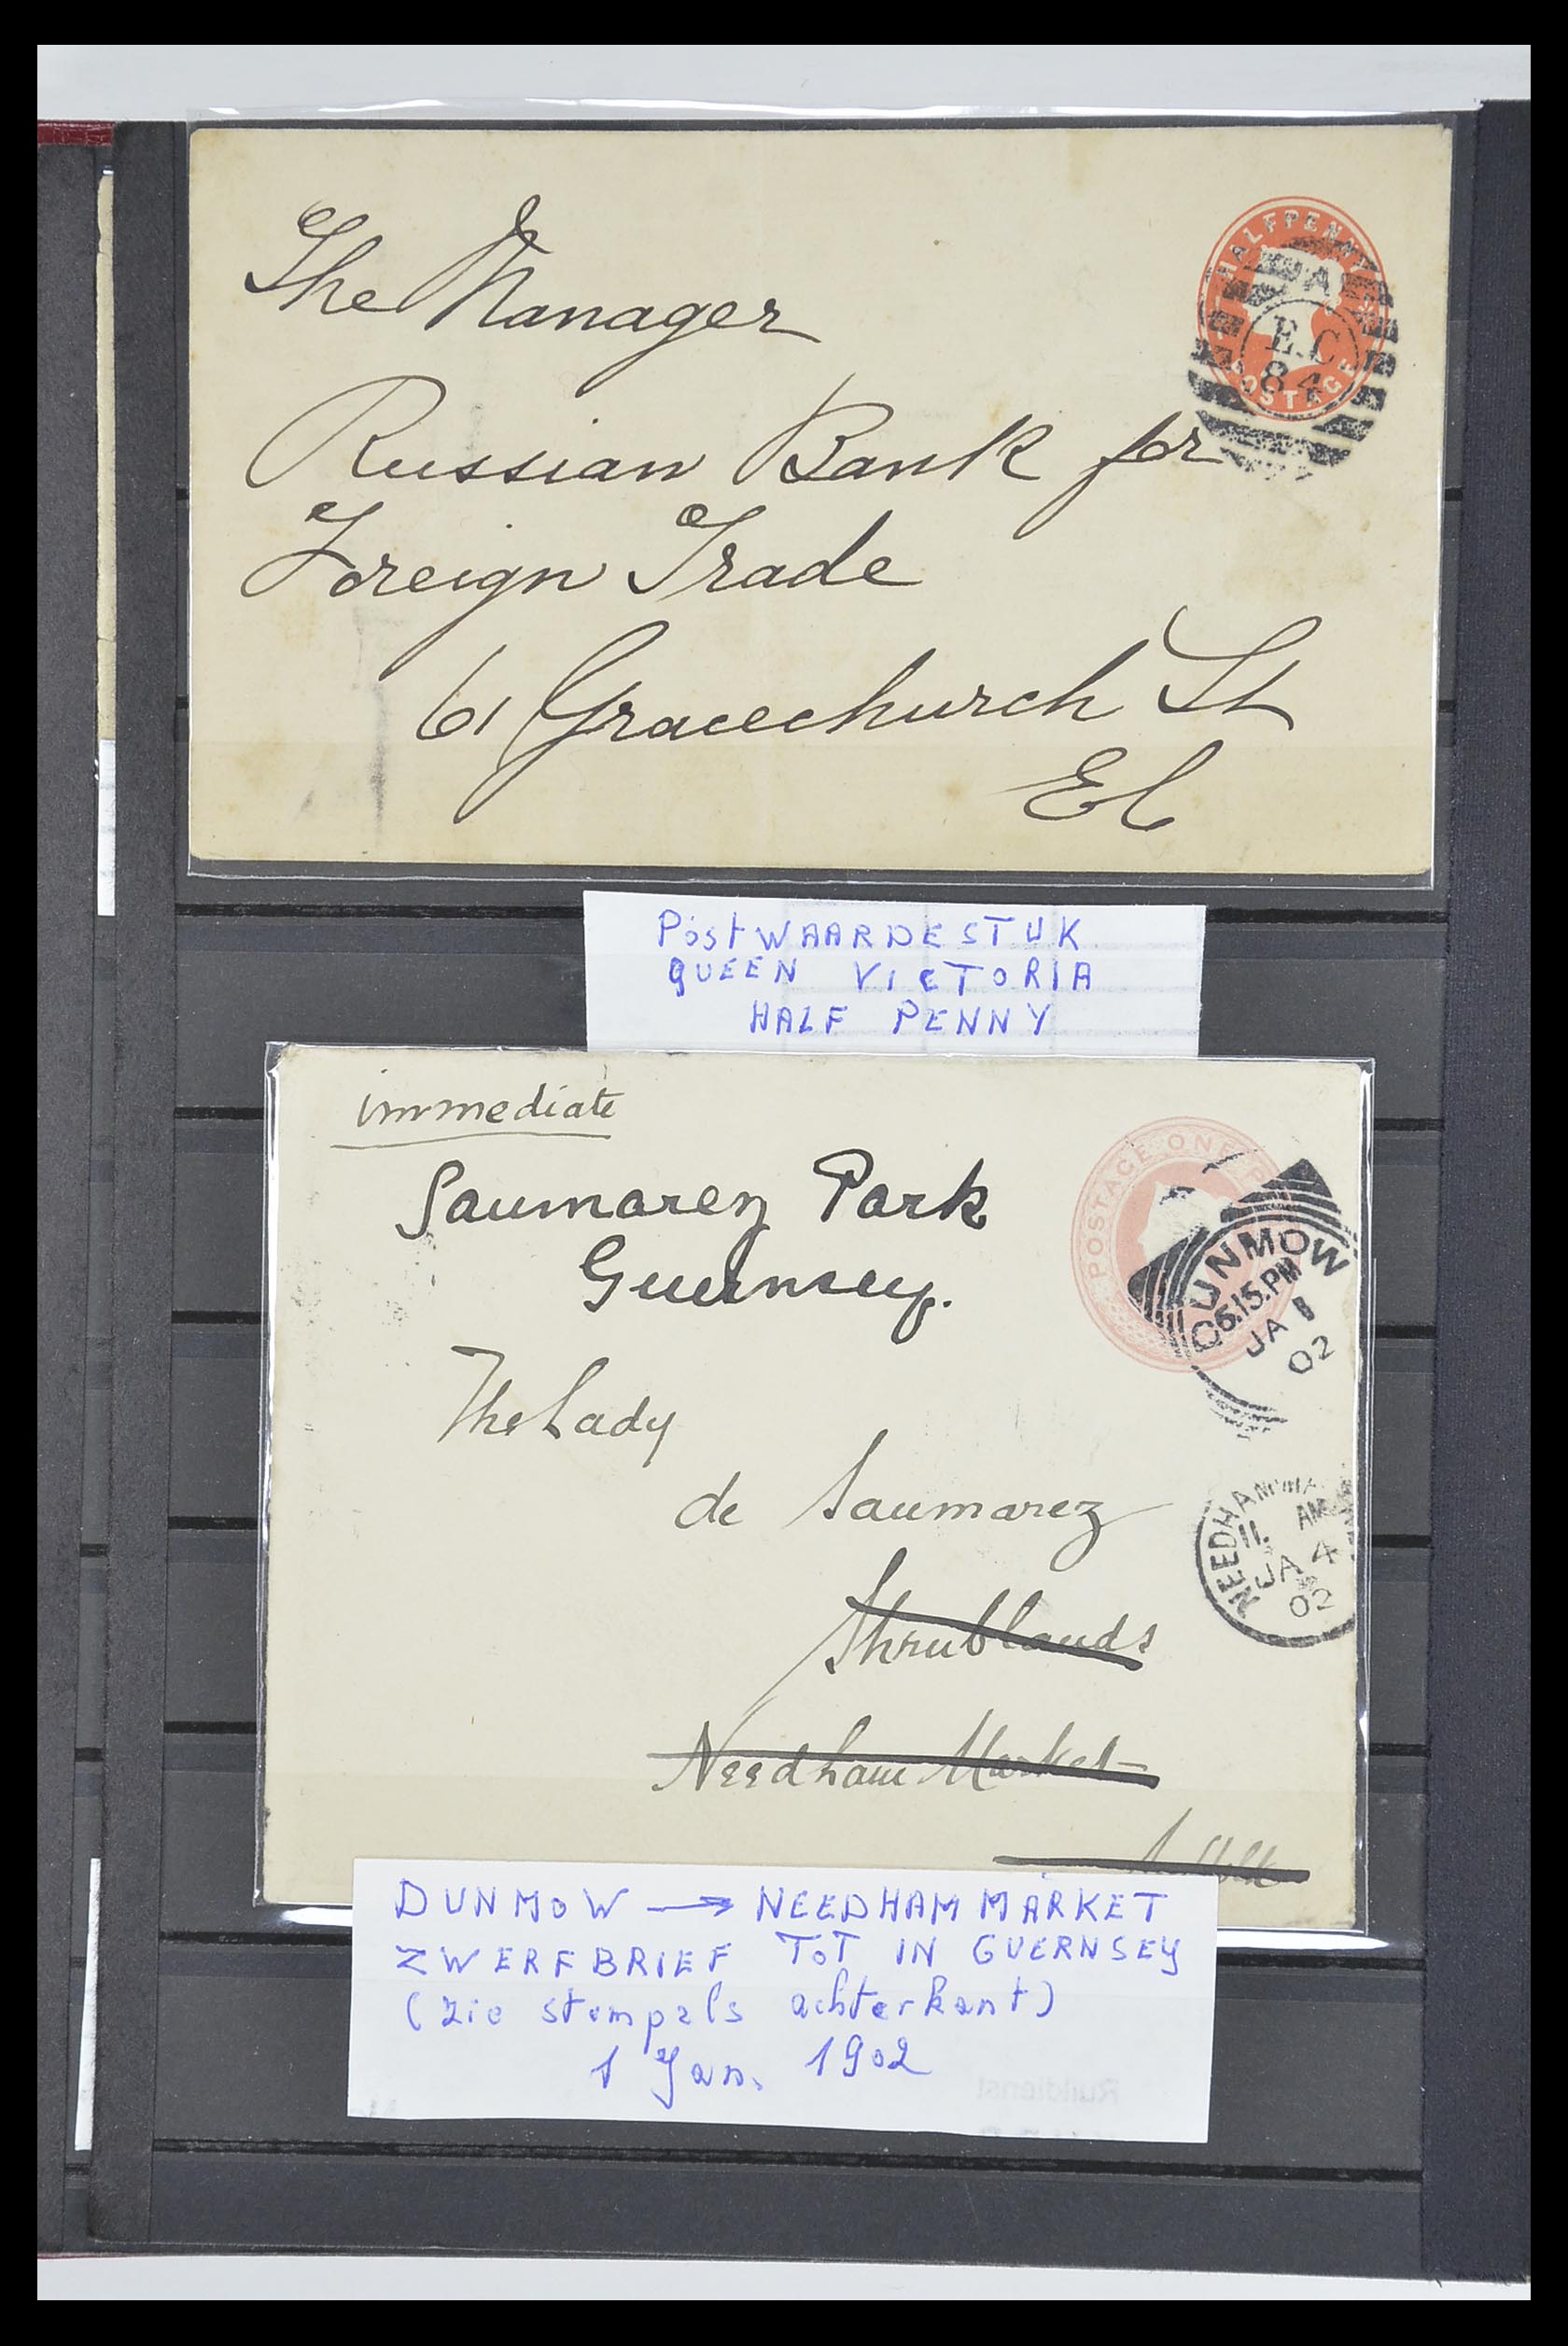 The Manager
Russian Bank for
Foreign Trade
61 Gracechurch St
EC
HALFPENNY
POSTAGE
A
E.C
84
PostWAARDESTUK
QUEEN VICTORIA
HALF PENNY
immediate
Saumarez Park
Guernsey.
The Lady
de Saumarez
Shrublands
Needham Market
POSTAGE ONE
DUNMOW
6.15.PM
JA 1
02
NEEDHAM
11. AM
JA 4
02
DUNMOW → NEEDHAM MARKET
ZWERFBRIEF TOT IN GUERNSEY
(zie stempels achterkant)
1 Jan. 1902
Ruildienst